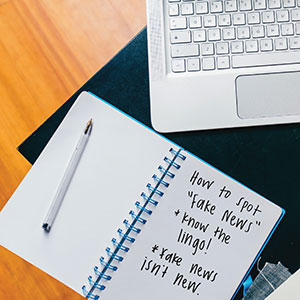 How to spot
"Fake News"
* know the
lingo!
* Fake news
isn't new.